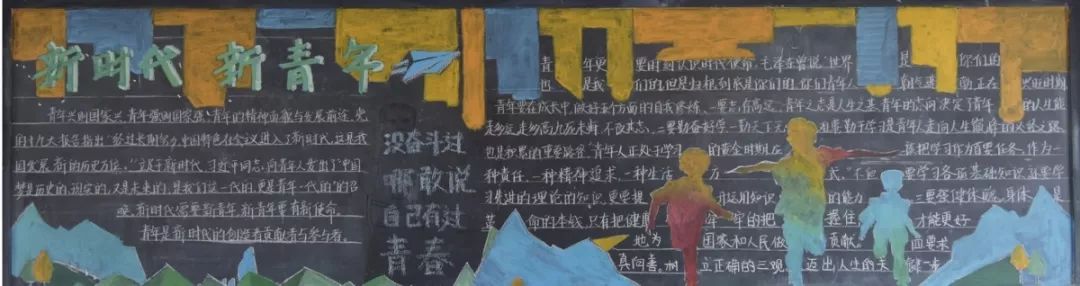 新时代 新青年
青年兴则国家兴,青年强则国家强,青年的精神面貌与发展前途,党
的十九大报告指出“经过长期努力,中国特色社会主义进入了新时代,这是我
国发展新的历史方位。”这是个新时代,习近平同志向青年发出了“中国
梦是历史的、现实的,又是未来的,是我们这一代的,更是青年一代的”的召
唤,新时代需要新青年,新青年要有新使命。
青年是新时代的创造者贡献者与参与者。
没奋斗过
哪敢说
自己有过
青春
青年更 要时刻认识时代使命,毛泽东曾说“世界 是 你们的
也是我们的,但是归根到底是你们的。你们青年人 朝气蓬勃 正在兴旺时期
青年要在成长中,做好五个方面的自我修炼。一要志存高远。青年之志是人生之基,青年的志向决定了青年 的人生能
走多远,走多高,九万未来,不改其志。二要勤奋好学,一勤天下无 勤于学习是青年走向人生巅峰的必经之路,
也是积累的重要路径“青年人正处于学习 的黄金时期,应 该把学习作为首要任务,作为一
种责任、一种精神追求、一种生活 方 式。”不 要学习各项基础知识,还要学
习先进的理论的知识,更要提 运用知识 的能力 三要强健体魄。身体 是
革 命的本钱,只有把健康 牢牢的把 握住 才能更好
地为 国家和人民做 贡献。 面要求
真向善。树 立正确的三观 迈出人生的关 键一步